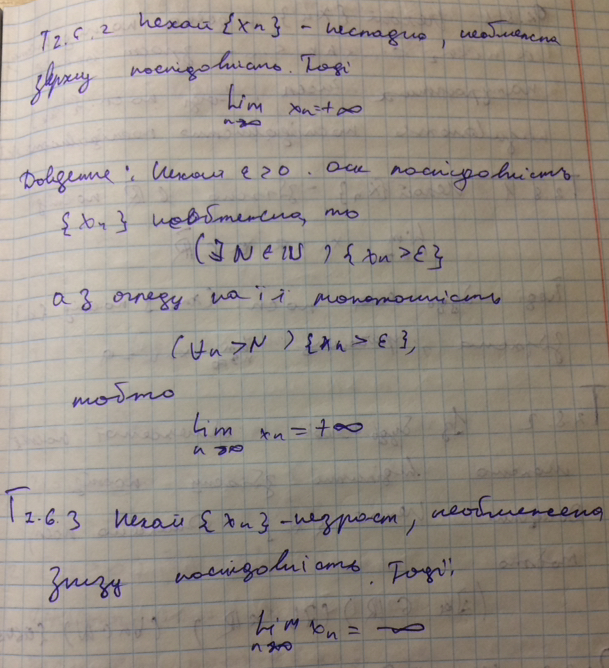 Т 2.6.2 Нехай {xn} - неспадна, необмежена
зверху послідовність. Тоді
lim xn = +∞
n→∞
Доведення: Нехай ε>0. оск послідовність
{xn} необмежена, то
(∃ N ∈ ℕ) {xn > ε}
а з огляду на її монотонність
(∀n > N) {xn > ε},
тобто
lim xn = +∞
n→∞
Т 2.6.3 Нехай {xn} - незрост, необмежена
знизу послідовність. Тоді:
lim xn = -∞
n→∞